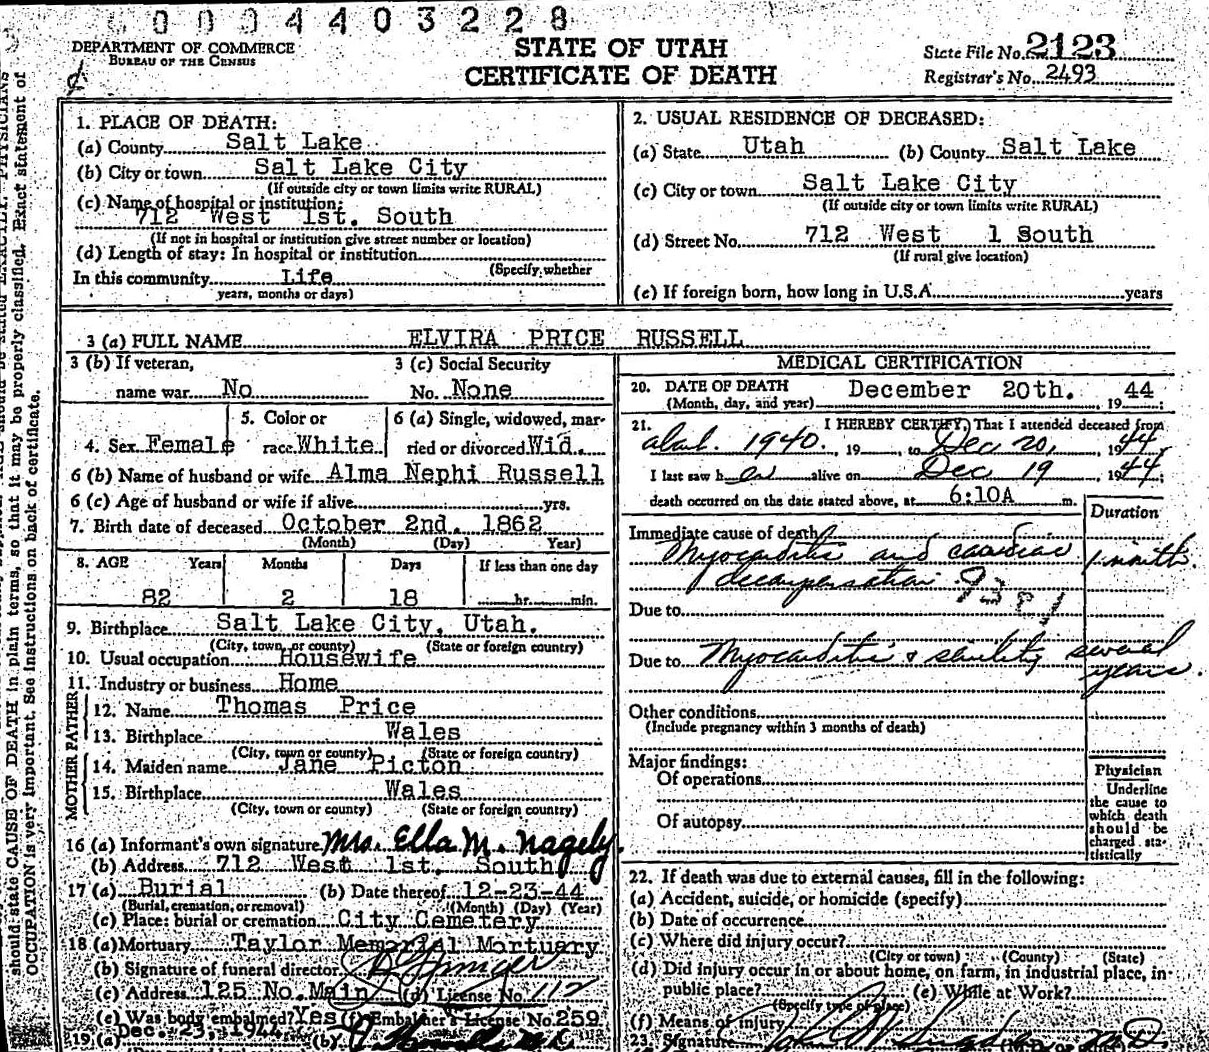 0004403228
DEPARTMENT OF COMMERCE
BUREAU OF THE CENSUS
STATE OF UTAH
CERTIFICATE OF DEATH
State File No. 2123
Registrar's No. 2493
should state CAUSE OF DEATH in plain terms, so that it may be properly classified. Exact statement of
OCCUPATION is very important. See instructions on back of certificate.
1. PLACE OF DEATH:
(a) County Salt Lake
(b) City or town Salt Lake City
(If outside city or town limits write RURAL)
(c) Name of hospital or institution:
712 West 1st. South
(If not in hospital or institution give street number or location)
(d) Length of stay: In hospital or institution
(Specify whether
In this community Life
years, months or days)
2. USUAL RESIDENCE OF DECEASED:
(a) State Utah (b) County Salt Lake
(c) City or town Salt Lake City
(If outside city or town limits write RURAL)
(d) Street No. 712 West 1 South
(If rural give location)
(e) If foreign born, how long in U.S.A. years
3 (a) FULL NAME ELVIRA PRICE RUSSELL
3 (b) If veteran,
name war No
3 (c) Social Security
No. None
4. Sex Female
5. Color or
race White
6 (a) Single, widowed, mar-
ried or divorced Wid.
6 (b) Name of husband or wife Alma Nephi Russell
6 (c) Age of husband or wife if alive yrs.
7. Birth date of deceased October 2nd. 1862
(Month) (Day) Year)
8. AGE Years Months Days If less than one day
82 2 18 hr. min.
9. Birthplace Salt Lake City, Utah.
(City, town or county) (State or foreign country)
10. Usual occupation Housewife
11. Industry or business Home
FATHER
12. Name Thomas Price
13. Birthplace Wales
(City, town or county) (State or foreign country)
MOTHER
14. Maiden name Jane Picton
15. Birthplace Wales
(City, town or county) (State or foreign country)
16 (a) Informant's own signature Mrs. Ella M. Nagely.
(b) Address 712 West 1st. South
17 (a) Burial (b) Date thereof 12-23-44
(Burial, cremation, or removal) (Month) (Day) (Year)
(c) Place: burial or cremation City Cemetery
18 (a) Mortuary Taylor Memorial Mortuary
(b) Signature of funeral director
(c) Address 125 No. Main (d) License No. 112
(e) Was body embalmed? Yes (f) Embalmer's License No. 259
19 (a) Dec. 23, 1944 (b)
MEDICAL CERTIFICATION
20. DATE OF DEATH December 20th. 1944
(Month, day, and year)
21. I HEREBY CERTIFY, That I attended deceased from
about 1940, 19 , to Dec 20, 1944,
I last saw her alive on Dec 19, 1944;
death occurred on the date stated above, at 6:10A m.
Duration
Immediate cause of death
Myocarditis and cardiac 1 month.
decompensation
Due to
Due to Myocarditis & senility several
years.
Other conditions
(Include pregnancy within 3 months of death)
Major findings:
Of operations
Of autopsy
Physician
Underline
the cause to
which death
should be
charged sta-
tistically
22. If death was due to external causes, fill in the following:
(a) Accident, suicide, or homicide (specify)
(b) Date of occurrence
(c) Where did injury occur?
(City or town) (County) (State)
(d) Did injury occur in or about home, on farm, in industrial place, in
public place? (e) While at Work?
(Specify type of place)
(f) Means of injury
23. Signature